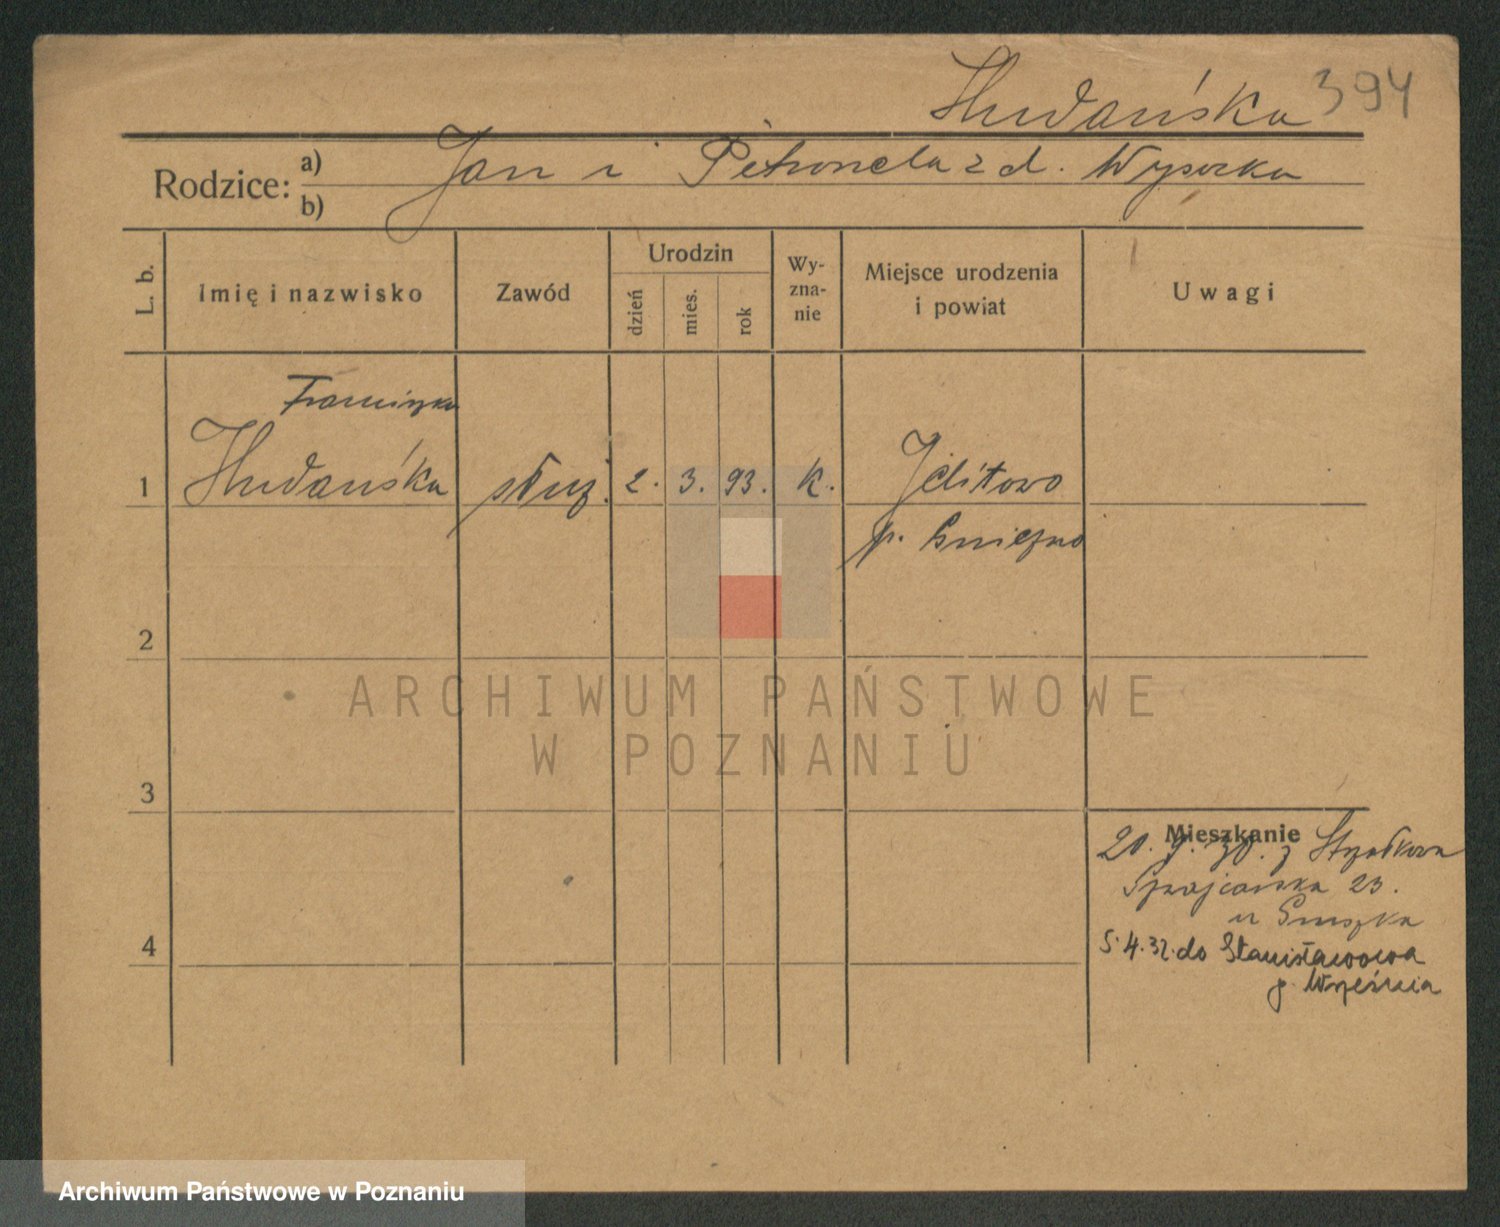 Hudańska 394
Rodzice: a) Jan i Petronela z d. Wysocka
b)
L. b.
Imię i nazwisko
Zawód
Urodzin
dzień
mies.
rok
Wy-
zna-
nie
Miejsce urodzenia
i powiat
Uwagi
Franciszka
1 Hudańska służ. 2. 3. 93. K. Jelitowo
p. Gniezno
2
3
4
Mieszkanie
20. 9. 30. z Strzałkowa
Szwajcarska 23.
u
5.4.32. do Stanisławowa
p. Września
ARCHIWUM PAŃSTWOWE
W POZNANIU
Archiwum Państwowe w Poznaniu